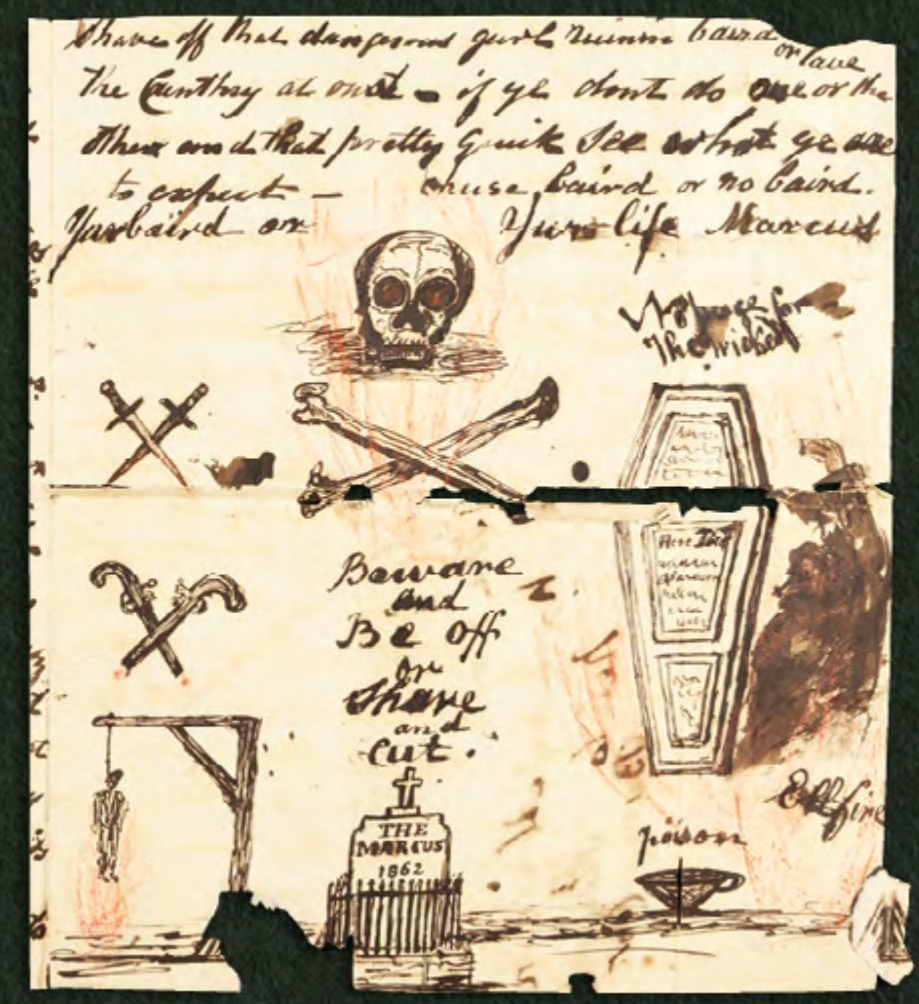 Shave off that dangerous gurl ruinin baird or lave
the Counthry at onst - if ye dont do one or the
other and that pretty quik See what ye are
to expect - chuse baird or no baird.
Yur baird or Yur life Marcus
Vengence for
the wicked
Here Lies
Beware
and
Be off
or
Shave
and
Cut.
THE
MARCUS
1862
Ell fire
poison